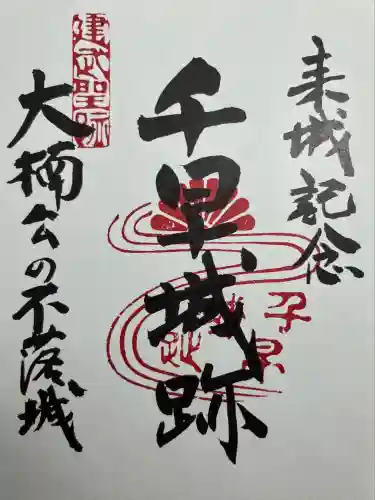 来城記念
千早城跡
大楠公の不落城
建武聖跡
千早
城址